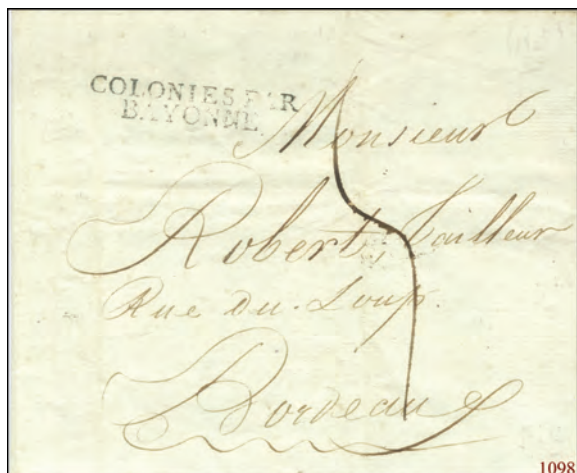 COLONIES PAR
BAYONNE
Monsieur
Robert, Tailleur
Rue du Loup.
Bordeaux
1098